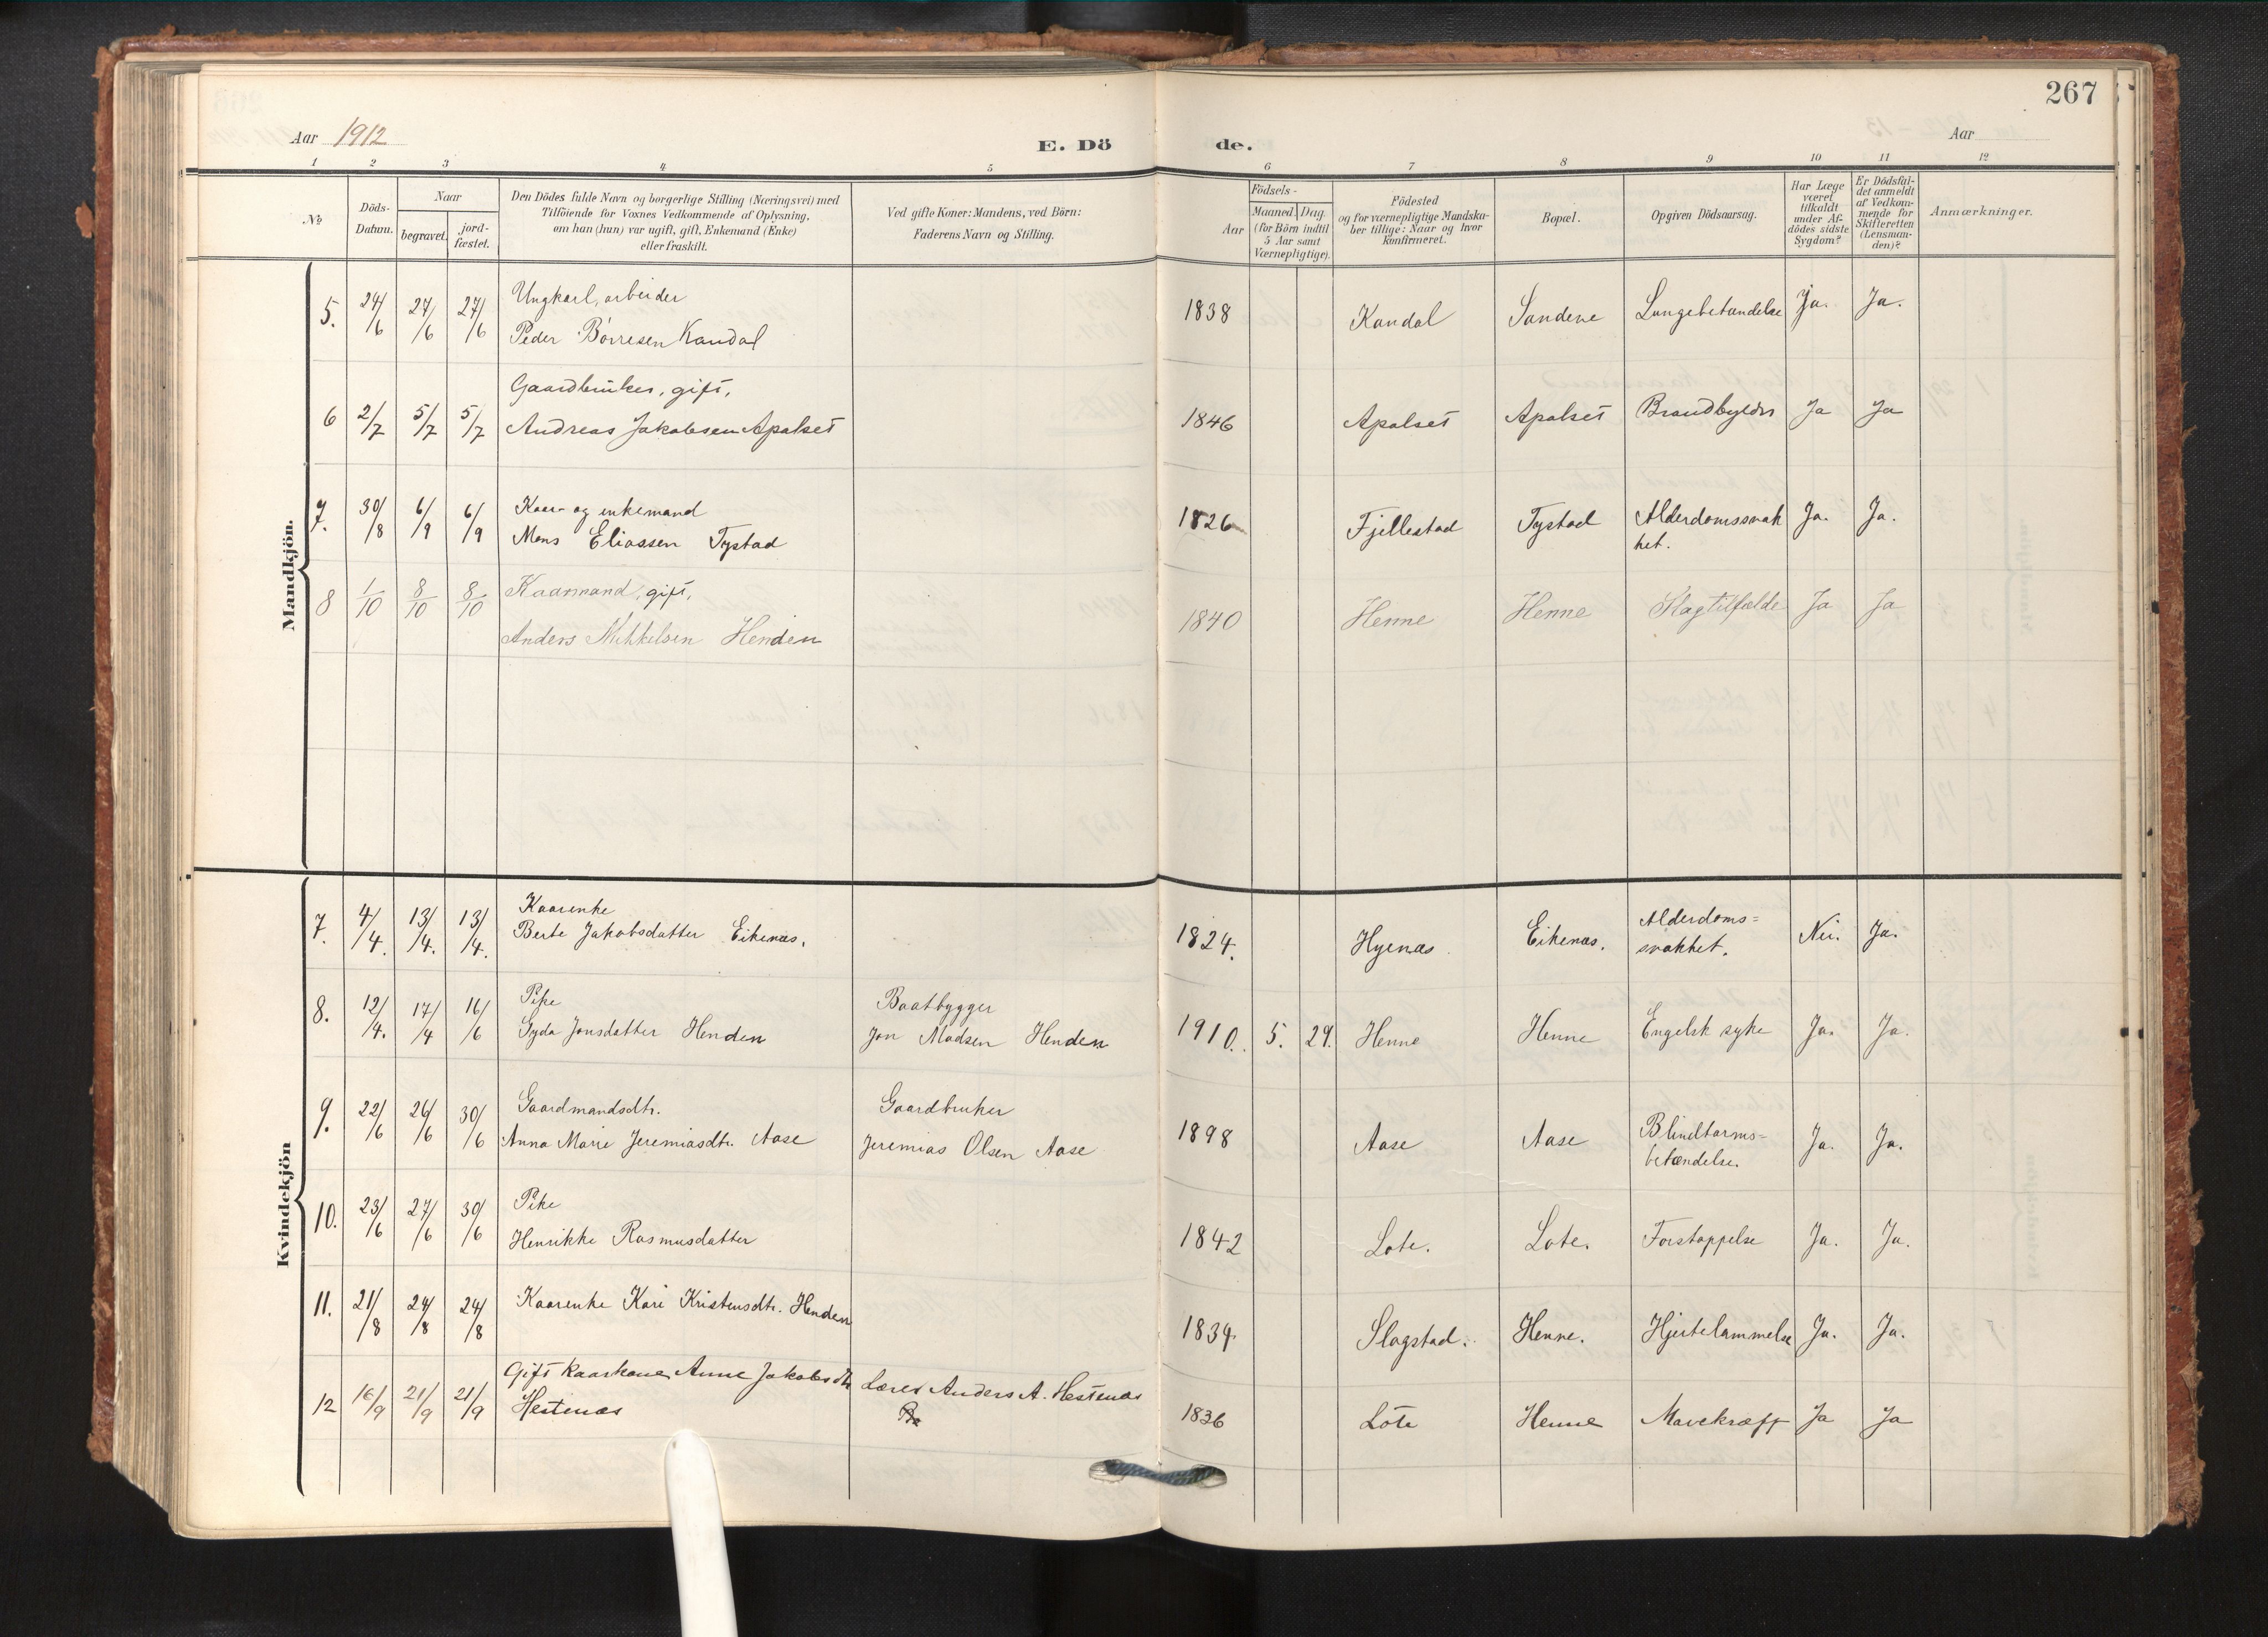 267
Aar 1912
E. Dö
de.
Aar
1 2 3 4 5 6 7 8 9 10 11 12
№
Döds-
Datum.
Naar
begravet.
jord-
fæstet.
Den Dödes fulde Navn og borgerlige Stilling (Næringsvei) med
Tilföiende for Voxnes Vedkommende af Oplysning,
om han (hun) var ugift, gift, Enkemand (Enke)
eller fraskilt.
Ved gifte Koner: Mandens, ved Börn:
Faderens Navn og Stilling.
Födsels-
Aar
Maaned. Dag.
(for Börn indtil
5 Aar samt
Værnepligtige).
Födested
og for værnepligtige Mandska-
ber tillige: Naar og hvor
konfirmeret.
Bopæl.
Opgiven Dödsaarsag.
Har Læge
været
tilkaldt
under Af-
dödes sidste
Sygdom?
Er Dödsfal-
det anmeldt
af Vedkom-
mende for
Skifteretten
(Lensman-
den)?
Anmærkninger.
Mandkjön.
5. 24/6 27/6 27/6 Ungkarl, arbeider
Peder Børresen Kandal
1838 Kandal Sandene Lungebetændelse Ja. Ja.
6 2/7 5/7 5/7 Gaardbruker, gift,
Andreas Jakobsen Apalset
1846 Apalset Apalset Brandbylder Ja Ja
7. 30/8 6/9 6/9 Kaar- og enkemand
Mons Eliassen Tystad
1826 Fjellestad Tystad Alderdomssvak
het.
Ja. Ja.
8 1/10 8/10 8/10 Kaarmand, gift,
Anders Mikkelsen Henden
1840 Henne Henne Slagtilfælde Ja Ja
Kvindekjön
7. 4/4. 13/4. 13/4. Kaarenke
Berte Jakobsdatter Eikenæs.
1824. Hyenæs Eikenæs. Alderdoms=
svakhet.
Nei. Ja.
8. 12/4. 17/4 16/6 Pike
Gyda Jonsdatter Henden
Baatbygger
Jon Madsen Henden
1910. 5. 29. Henne Henne Engelsk syke Ja. Ja.
9. 22/6 26/6 30/6 Gaardmandsdtr.
Anna Marie Jeremiasdtr. Aase
Gaardbruker
Jeremias Olsen Aase
1898 Aase Aase Blindtarms=
betændelse.
Ja. Ja.
10. 23/6 27/6 30/6 Pike
Henrikke Rasmusdatter
1842 Lote. Lote. Forstoppelse Ja. Ja.
11. 21/8 24/8 24/8 Kaarenke Kari Kristensdtr. Henden
1834. Slagstad. Henne. Hjertelammelse Ja. Ja.
12 16/9 21/9 21/9 Gift kaarkone Anne Jakobsdtr
Hestenæs
Lærer Anders A. Hestenæs
1836 Lote Henne Mavekræft Ja Ja